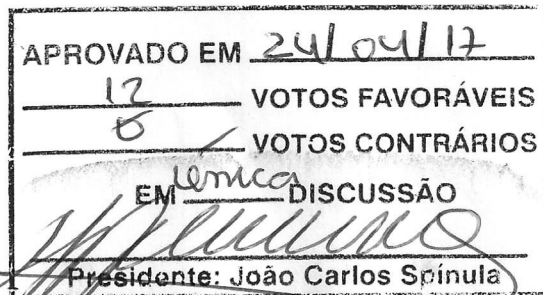 APROVADO EM 24/04/17
12 VOTOS FAVORÁVEIS
0 VOTOS CONTRÁRIOS
EM única DISCUSSÃO
Presidente: João Carlos Spínula